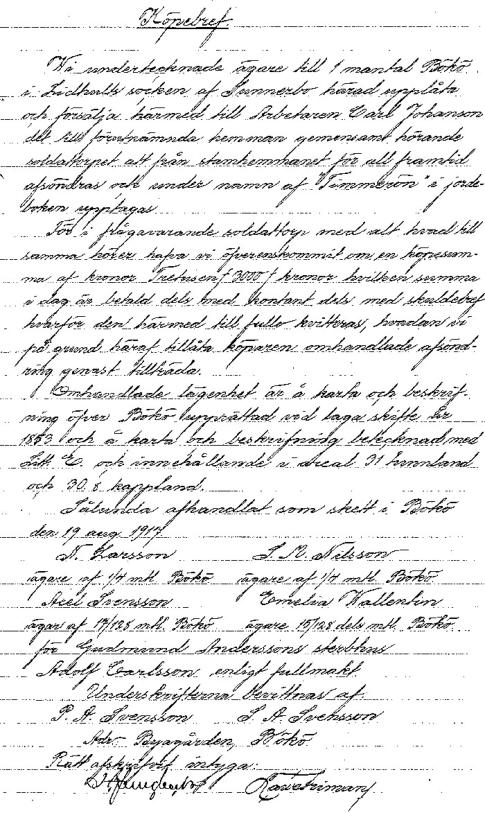 Köpebref.
Wi undertecknade ägare till 1 mantal Bökö
i Lidhults socken af Sunnerbo härad upplåta
och försälja härmed till Arbetaren Carl Johanson
det till förutnämda hemman gemensamt hörande
soldattorpet att från stamhemmanet för all framtid
afsöndras och under namn af "Timmerön" i jorde-
boken upptagas.
För i frågavarande soldattorp med alt hvad till
samma hörer hafva vi öfverenskommit om en köpesum-
ma af kronor Tretusen / 3000 / kronor hvilken summa
i dag är betald dels med kontant dels med skuldebref
hvarför den härmed till fullo kvitteras, hvadan vi
på grund häraf tillåta köparen omhandlade afsönd-
ring genast tillträda.
Omhandlade lägenhet är å karta och beskrif-
ning öfver Bökö upprättad vid laga skifte år
1853 och å karta och beskrifning betecknad med
Litt. E. och innehållande i areal 31 tunnland
och 30,8 kappland.
Sålunda afhandlat som skett i Bökö
den 19 aug. 1917
N. Larsson S. M. Nilsson
ägare af 1/4 mtl. Bökö ägare af 1/4 mtl. Bökö.
Axel Svensson Emelia Wallentin
ägar af 17/128 mtl. Bökö ägare 15/128 dels mtl. Bökö.
för Gudmund Anderssons sterbhus
Adolf Carlsson enligt fullmakt
Underskrifterna bevittnas af:
P. A. Svensson S. A. Svensson
Adr. Byagården, Bökö
Rätt afskrifvit intyga: